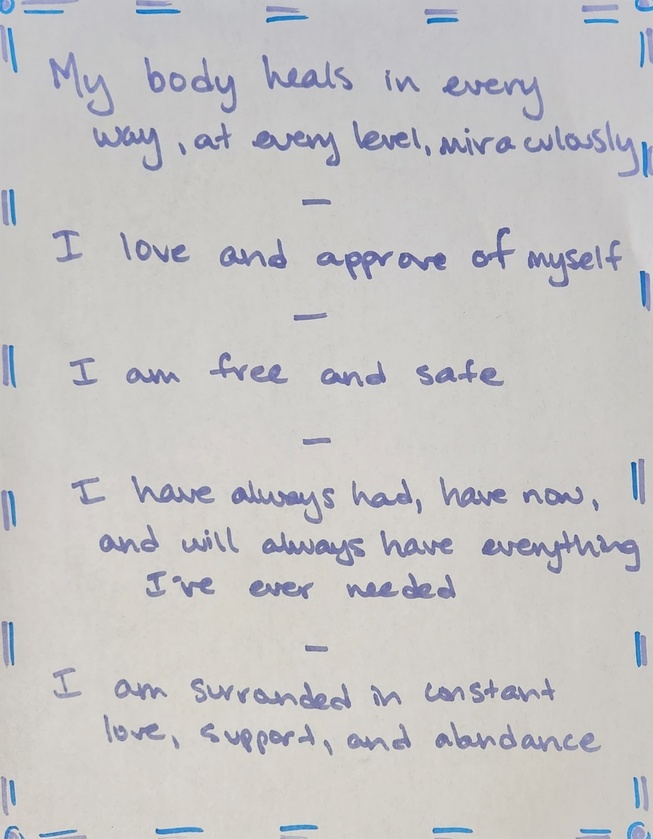 My body heals in every
way, at every level, miraculously
—
I love and approve of myself
—
I am free and safe
—
I have always had, have now,
and will always have everything
I've ever needed
—
I am surranded in constant
love, support, and abandance